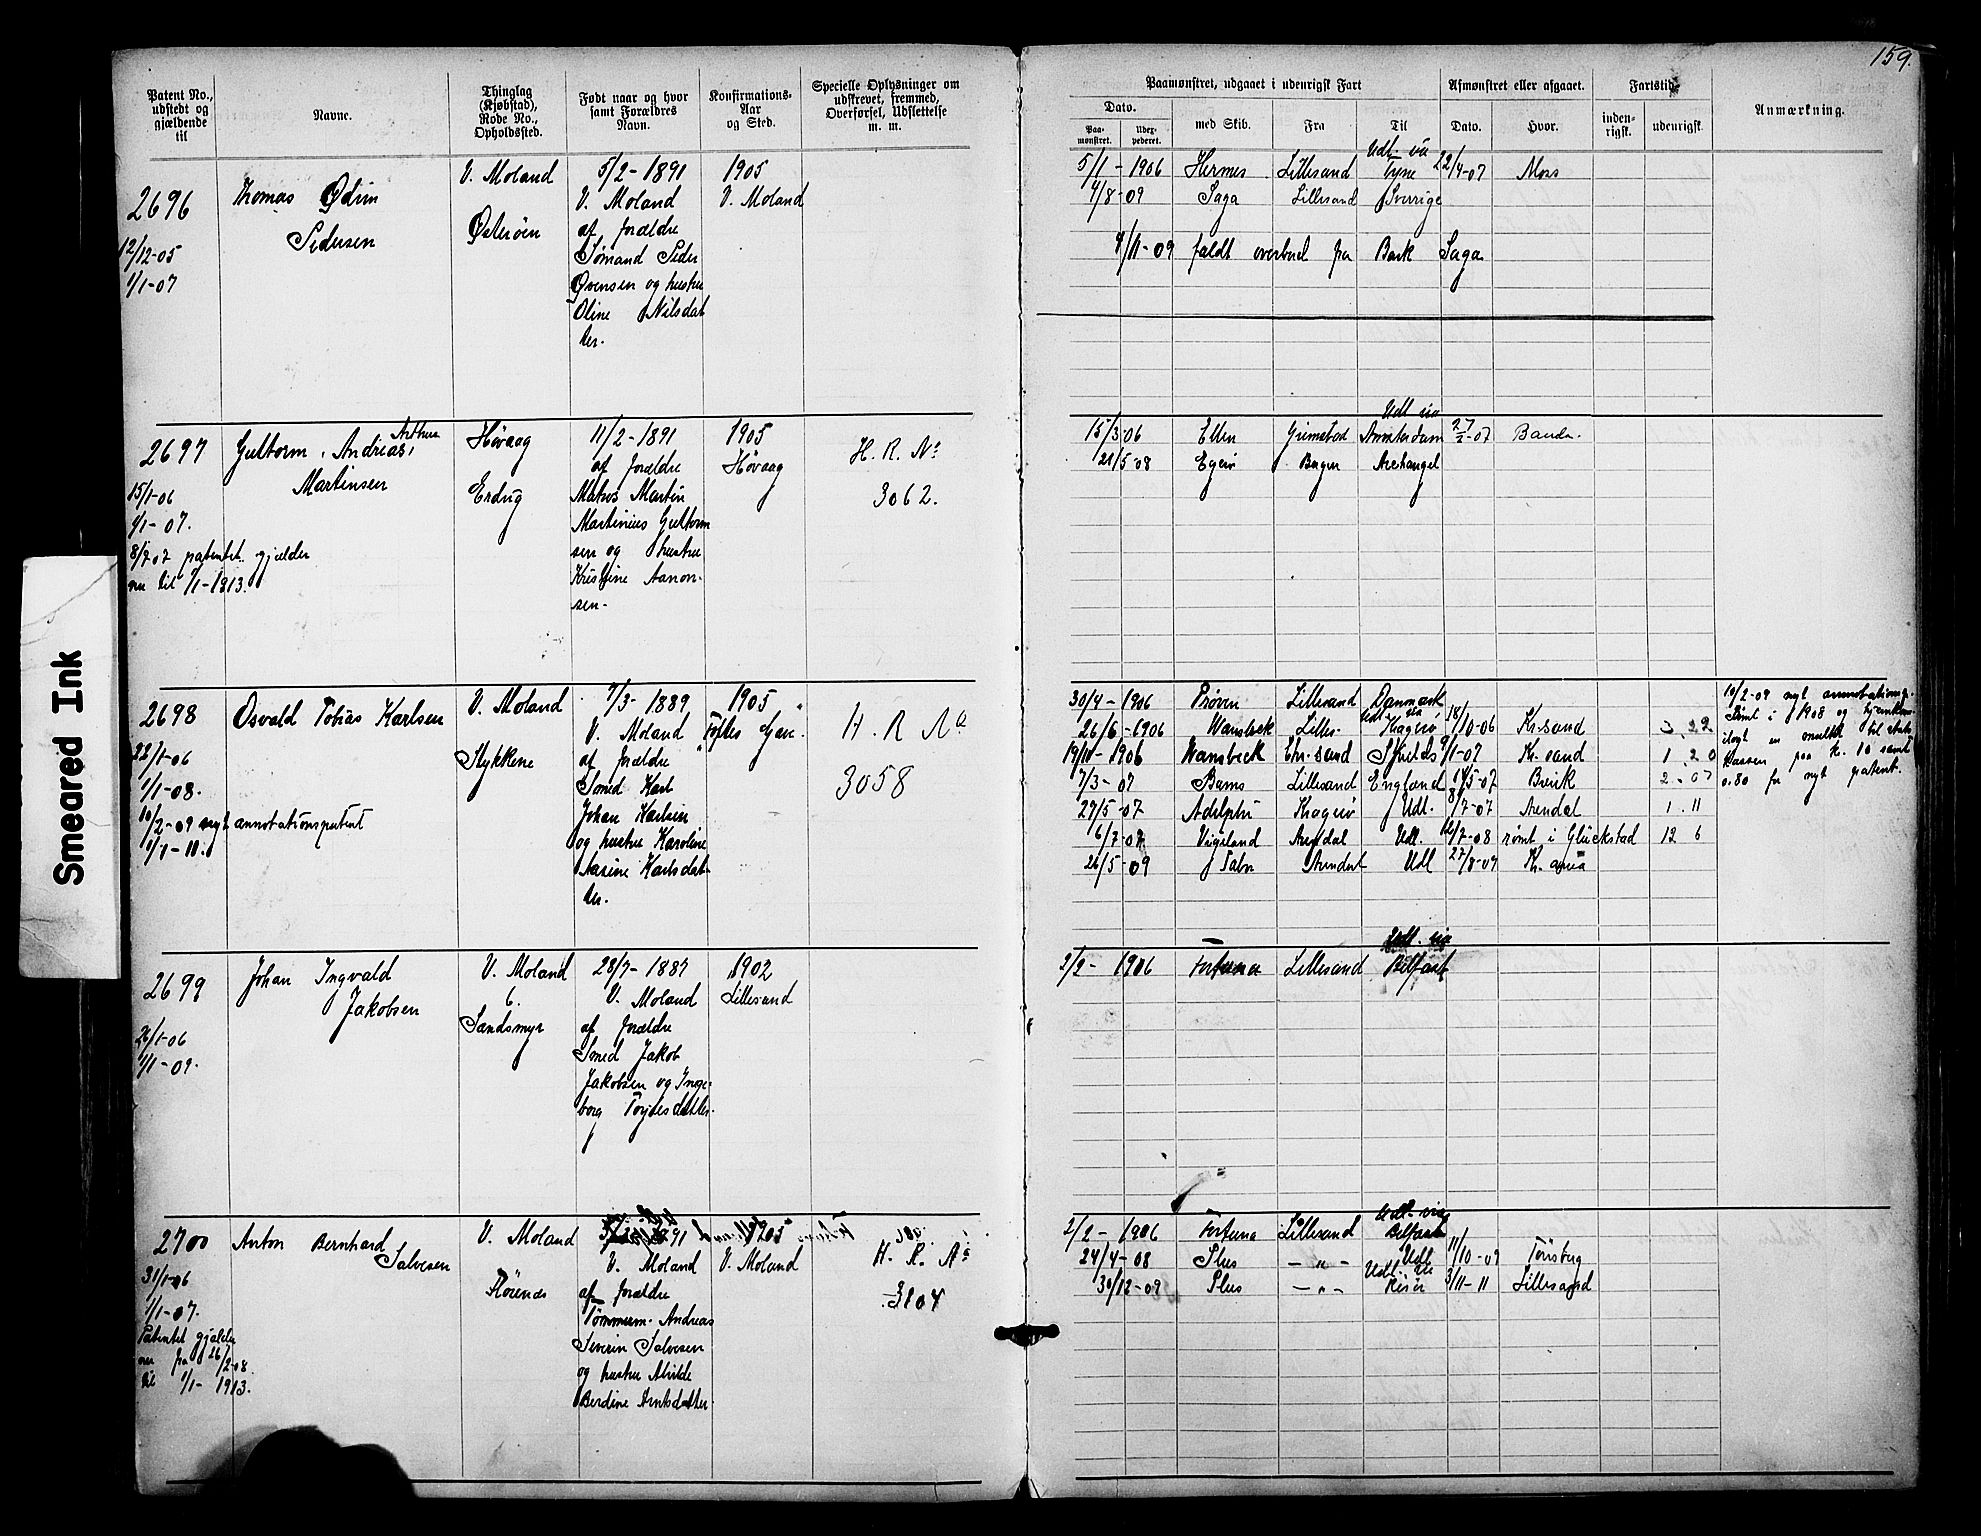 159.
Patent No., udstedt og gjældende til
Navne.
Thinglag (Kjøbstad), Rode No., Opholdssted.
Født naar og hvor samt Forældres Navn.
Konfirmations-Aar og Sted.
Specielle Oplysninger om udskrevet, fremmed, Overførsel, Udslettelse m. m.
Paamønstret, udgaaet i udenrigsk Fart
Dato.
Paa-mønstret.
Udex-pederet.
med Skib.
Fra
Til
Afmønstret eller afgaaet.
Dato.
Hvor.
Fartstid.
inden-rigsk.
udenrigsk.
Anmærkning.
2696
12/12-05
1/1-07
Thomas Odin
Pedersen
V. Moland
Østerøen
5/2-1891
V. Moland
af forældre
Sømand Peder
Ovensen og hustru
Oline Nilsdat
ter.
1905
V. Moland
5/1-1906 Hermes Lillesand Udl. via Tyne 22/4-07 Moss
4/8-09 Saga Lillesand Sverige
4/11-09 faldt overbord fra Bark Saga
2697
15/1-06
1/1-07.
8/7 07 patentet gjælder
nu til 1/1-1913.
Guttorm Andreas Arthur
Martinsen
Høvaag
Erdvig
11/2-1891
af forældre
Mats Martin
Martinius Guttorm
sen og hustru
Kristine Aanon-
sen.
1905
Høvaag
H. R. No
3062.
15/3-06 Ellen Grimstad Udl via Amsterdam 27/2-07
21/5-08 Egerø Bergen Archangel
2698
22/1-06
1/1-08.
10/2-09 nyt annotationspatent
1/1-11.
Osvald Tobias Karlsen
V. Moland
Stykkene
7/3-1889
V. Moland
af forældre
Smed Karl
Johan Karlsen
og hustru Karoline
Nasine Karlsdat-
ter.
1905
H. R No
3058
30/4-1906 Prøven Lillesand Danmark
26/6-1906 Wansbeck Lilles- Udl via Kragerø 18/10-06 Kr.sand 3 22
19/11-1906 Wansbeck Chr.sand Shields 9/1-07 Kr. sand 1 20
7/3-07 Bams Lillesand England 14/5-07 2-07
27/5-07 Adelphi Kragerø Udl. 8/7-07 Arendal 1. 11
6/7-07 Vigeland Arendal Udl. 12/7-08 rømt i Glückstad 12 6
26/5-09 Tabor Arendal Udl 27/8-09 Kr. ania
10/2-09 nyt annotationsp.
Rømt i 1908 og
ilagt en mulkt til stats
kassen paa kr. 10 samt
0.80 for nyt patent.
2699
26/1-06
1/1-09.
Johan Ingvald
Jakobsen
V. Moland
6.
Sandsmyr
28/7-1887
V. Moland
af forældre
Smed Jakob
Jakobsen og Inge-
borg Terjesdatter.
1902
Lillesand
2/2-1906 Fortuna Lillesand Udl. via Belfast
2700
31/1-06
1/1-07.
Patentet gjælder
nu fra 26/2-08
til 1/1-1913.
Anton Bernhard
Salvesen
V. Moland
Flørenes
1891
V. Moland
af forældre
Tømmerm. Andreas
Severin Salvesen
og hustru Alvilde
Berdine Arntsdatter
1905
V. Moland
H. R. No
3104
2/2-1906 Fortuna Lillesand Udl. via Belfast
24/4-08 Plus -"- Udl 11/10-09 Tönsberg
30/12-09 Plus -"- Udl. via Risør 3/11-11 Lillesand
Smeared Ink